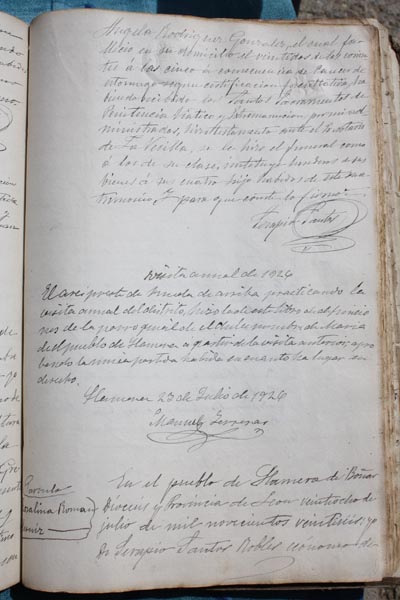 Angela Rodriguez Gonzalez, el cual fa-
lleció en su domicilio el veintidos de los corrien-
tes á las cinco á consecuencia de Cancer de
estómago segun certificacion facultativa, ha-
biendo recibido los Santos Sacramentos de
Penitencia Viático y Extremauncion, 
ministrados, hizo testamento ante el Notario
de La Vecilla, se le hizo el funeral como
á los de su clase, instituyó herederos de sus
bienes á sus cuatro hijos habidos de este ma-
trimonio, Y para que conste lo firmo =
Serapio Santos
Visita anual de 1926
El arcipreste de Rueda de arriba practicando la
visita anual del distrito, hizo la de este libro de defuncio-
nes de la parroquial de el dulce nombre de Maria
del pueblo de Llamera a partir de la visita anterior; apro-
bando la unica partida habida en cuanto ha lugar en
derecho.
Llamera 23 de Julio de 1926
Manuel Ferreras
En el pueblo de Llamera de Boñar
Diocesis y Provincia de Leon veintiocho de
julio de mil novecientos veintiseis; yo
Dn Serapio Santos Robles ecónomo de
Roman